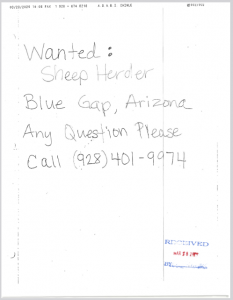 Wanted:
Sheep Herder
Blue Gap, Arizona
Any Question Please
Call (928) 401-9974
RECEIVED